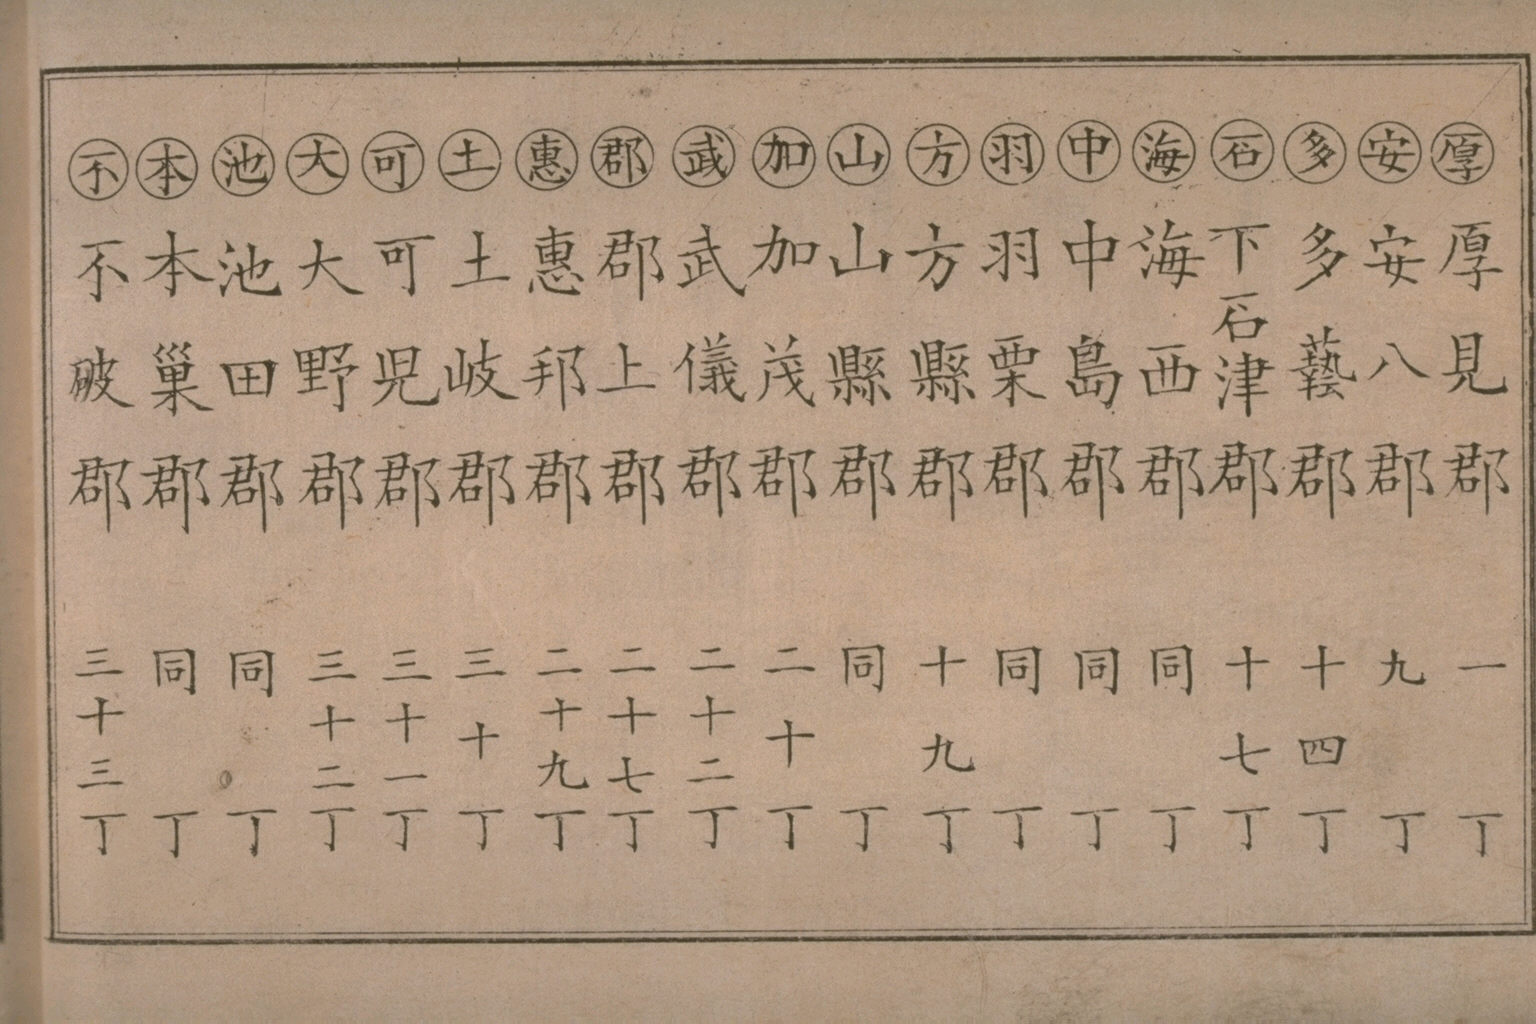 厚 厚見郡 一丁
安 安八郡 九丁
多 多藝郡 十四丁
石 下石津郡 十七丁
海 海西郡 同丁
中 中島郡 同丁
羽 羽栗郡 同丁
方 方縣郡 十九丁
山 山縣郡 同丁
加 加茂郡 二十丁
武 武儀郡 二十二丁
郡 郡上郡 二十七丁
惠 惠那郡 二十九丁
土 土岐郡 三十丁
可 可児郡 三十一丁
大 大野郡 三十二丁
池 池田郡 同丁
本 本巣郡 同丁
不 不破郡 三十三丁